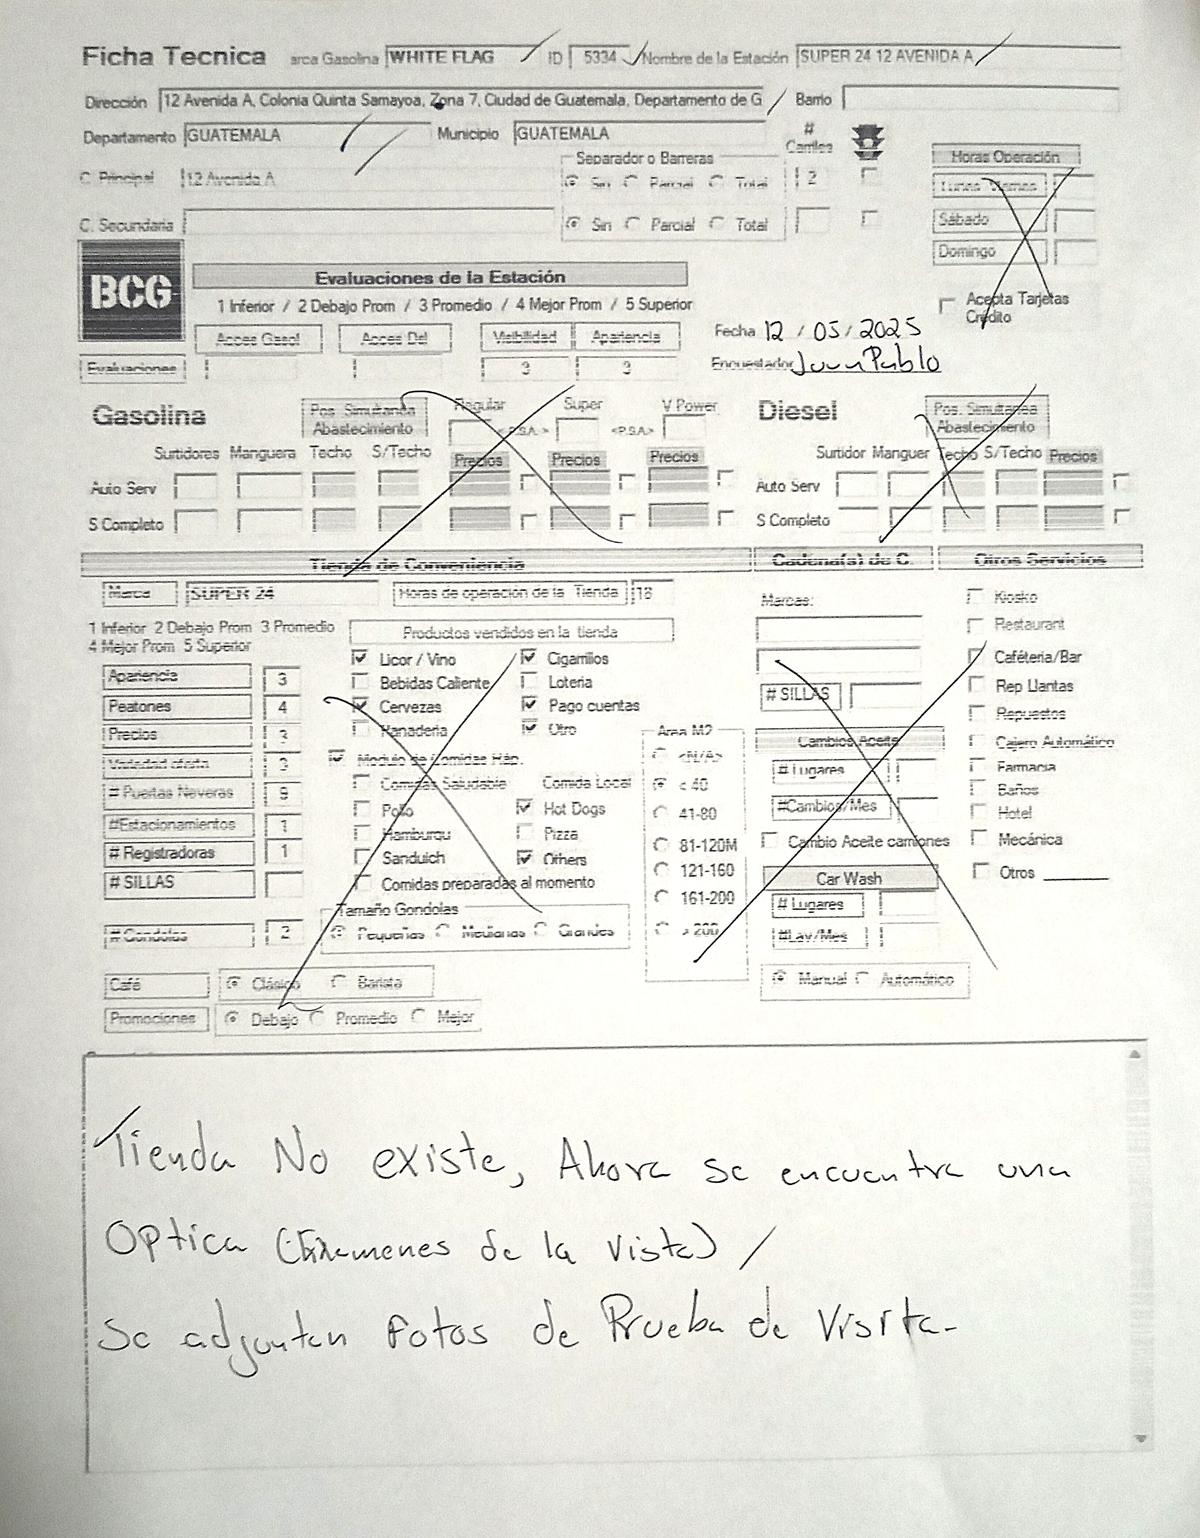 Ficha Tecnica arca Gasolina WHITE FLAG ID 5334 Nombre de la Estación SUPER 24 12 AVENIDA A
Dirección 12 Avenida A, Colonia Quinta Samayoa, Zona 7, Ciudad de Guatemala, Departamento de G Barrio
Departamento GUATEMALA Municipio GUATEMALA # Carriles
C. Principal 12 Avenida A Separador o Barreras Sin Parcial Total 2
C. Secundaria Sin Parcial Total
Horas Operación
Lunes Viernes
Sábado
Domingo
Acepta Tarjetas
Crédito
BCG
Evaluaciones de la Estación
1 Inferior / 2 Debajo Prom / 3 Promedio / 4 Mejor Prom / 5 Superior
Acces Gasol Acces Dsl Visibilidad Apariencia
Evaluaciones 3 3
Fecha 12 / 05 / 2025
Encuestador Juan Pablo
Gasolina Pos. Simultanea Abastecimiento Regular <P.S.A.> Super <P.S.A> V Power
Surtidores Manguera Techo S/Techo Precios Precios Precios
Auto Serv
S Completo
Diesel Pos. Simultanea Abastecimiento
Surtidor Manguer Techo S/Techo Precios
Auto Serv
S Completo
Tienda de Conveniencia Cadena(s) de C. Otros Servicios
Marca SUPER 24 Horas de operación de la Tienda 18
1 Inferior 2 Debajo Prom 3 Promedio
4 Mejor Prom 5 Superior
Apariencia 3
Peatones 4
Precios 3
Variedad oferta 3
# Puertas Neveras 9
#Estacionamientos 1
# Registradoras 1
# SILLAS
# Gondolas 2
Productos vendidos en la tienda
Licor / Vino Cigarrillos
Bebidas Caliente Loteria
Cervezas Pago cuentas
Panaderia Otro
Modulo de Comidas Ráp.
Comidas Saludable Comida Local
Pollo Hot Dogs
Hamburgu Pizza
Sanduich Others
Comidas preparadas al momento
Tamaño Gondolas
Pequeñas Medianas Grandes
Area M2
<N/A>
< 40
41-80
81-120M
121-160
161-200
> 200
Café Clásico Barista
Promociones Debajo Promedio Mejor
Marcas:
# SILLAS
Cambios Aceite
# Lugares
#Cambios/Mes
Cambio Aceite camiones
Car Wash
# Lugares
#Lav/Mes
Manual Automático
Kiosko
Restaurant
Caféteria/Bar
Rep Llantas
Repuestos
Cajero Automático
Farmacia
Baños
Hotel
Mecánica
Otros
Tienda No existe, Ahora se encuentra una
Optica (Exámenes de la vista) /
Se adjuntan Fotos de Prueba de Visita-